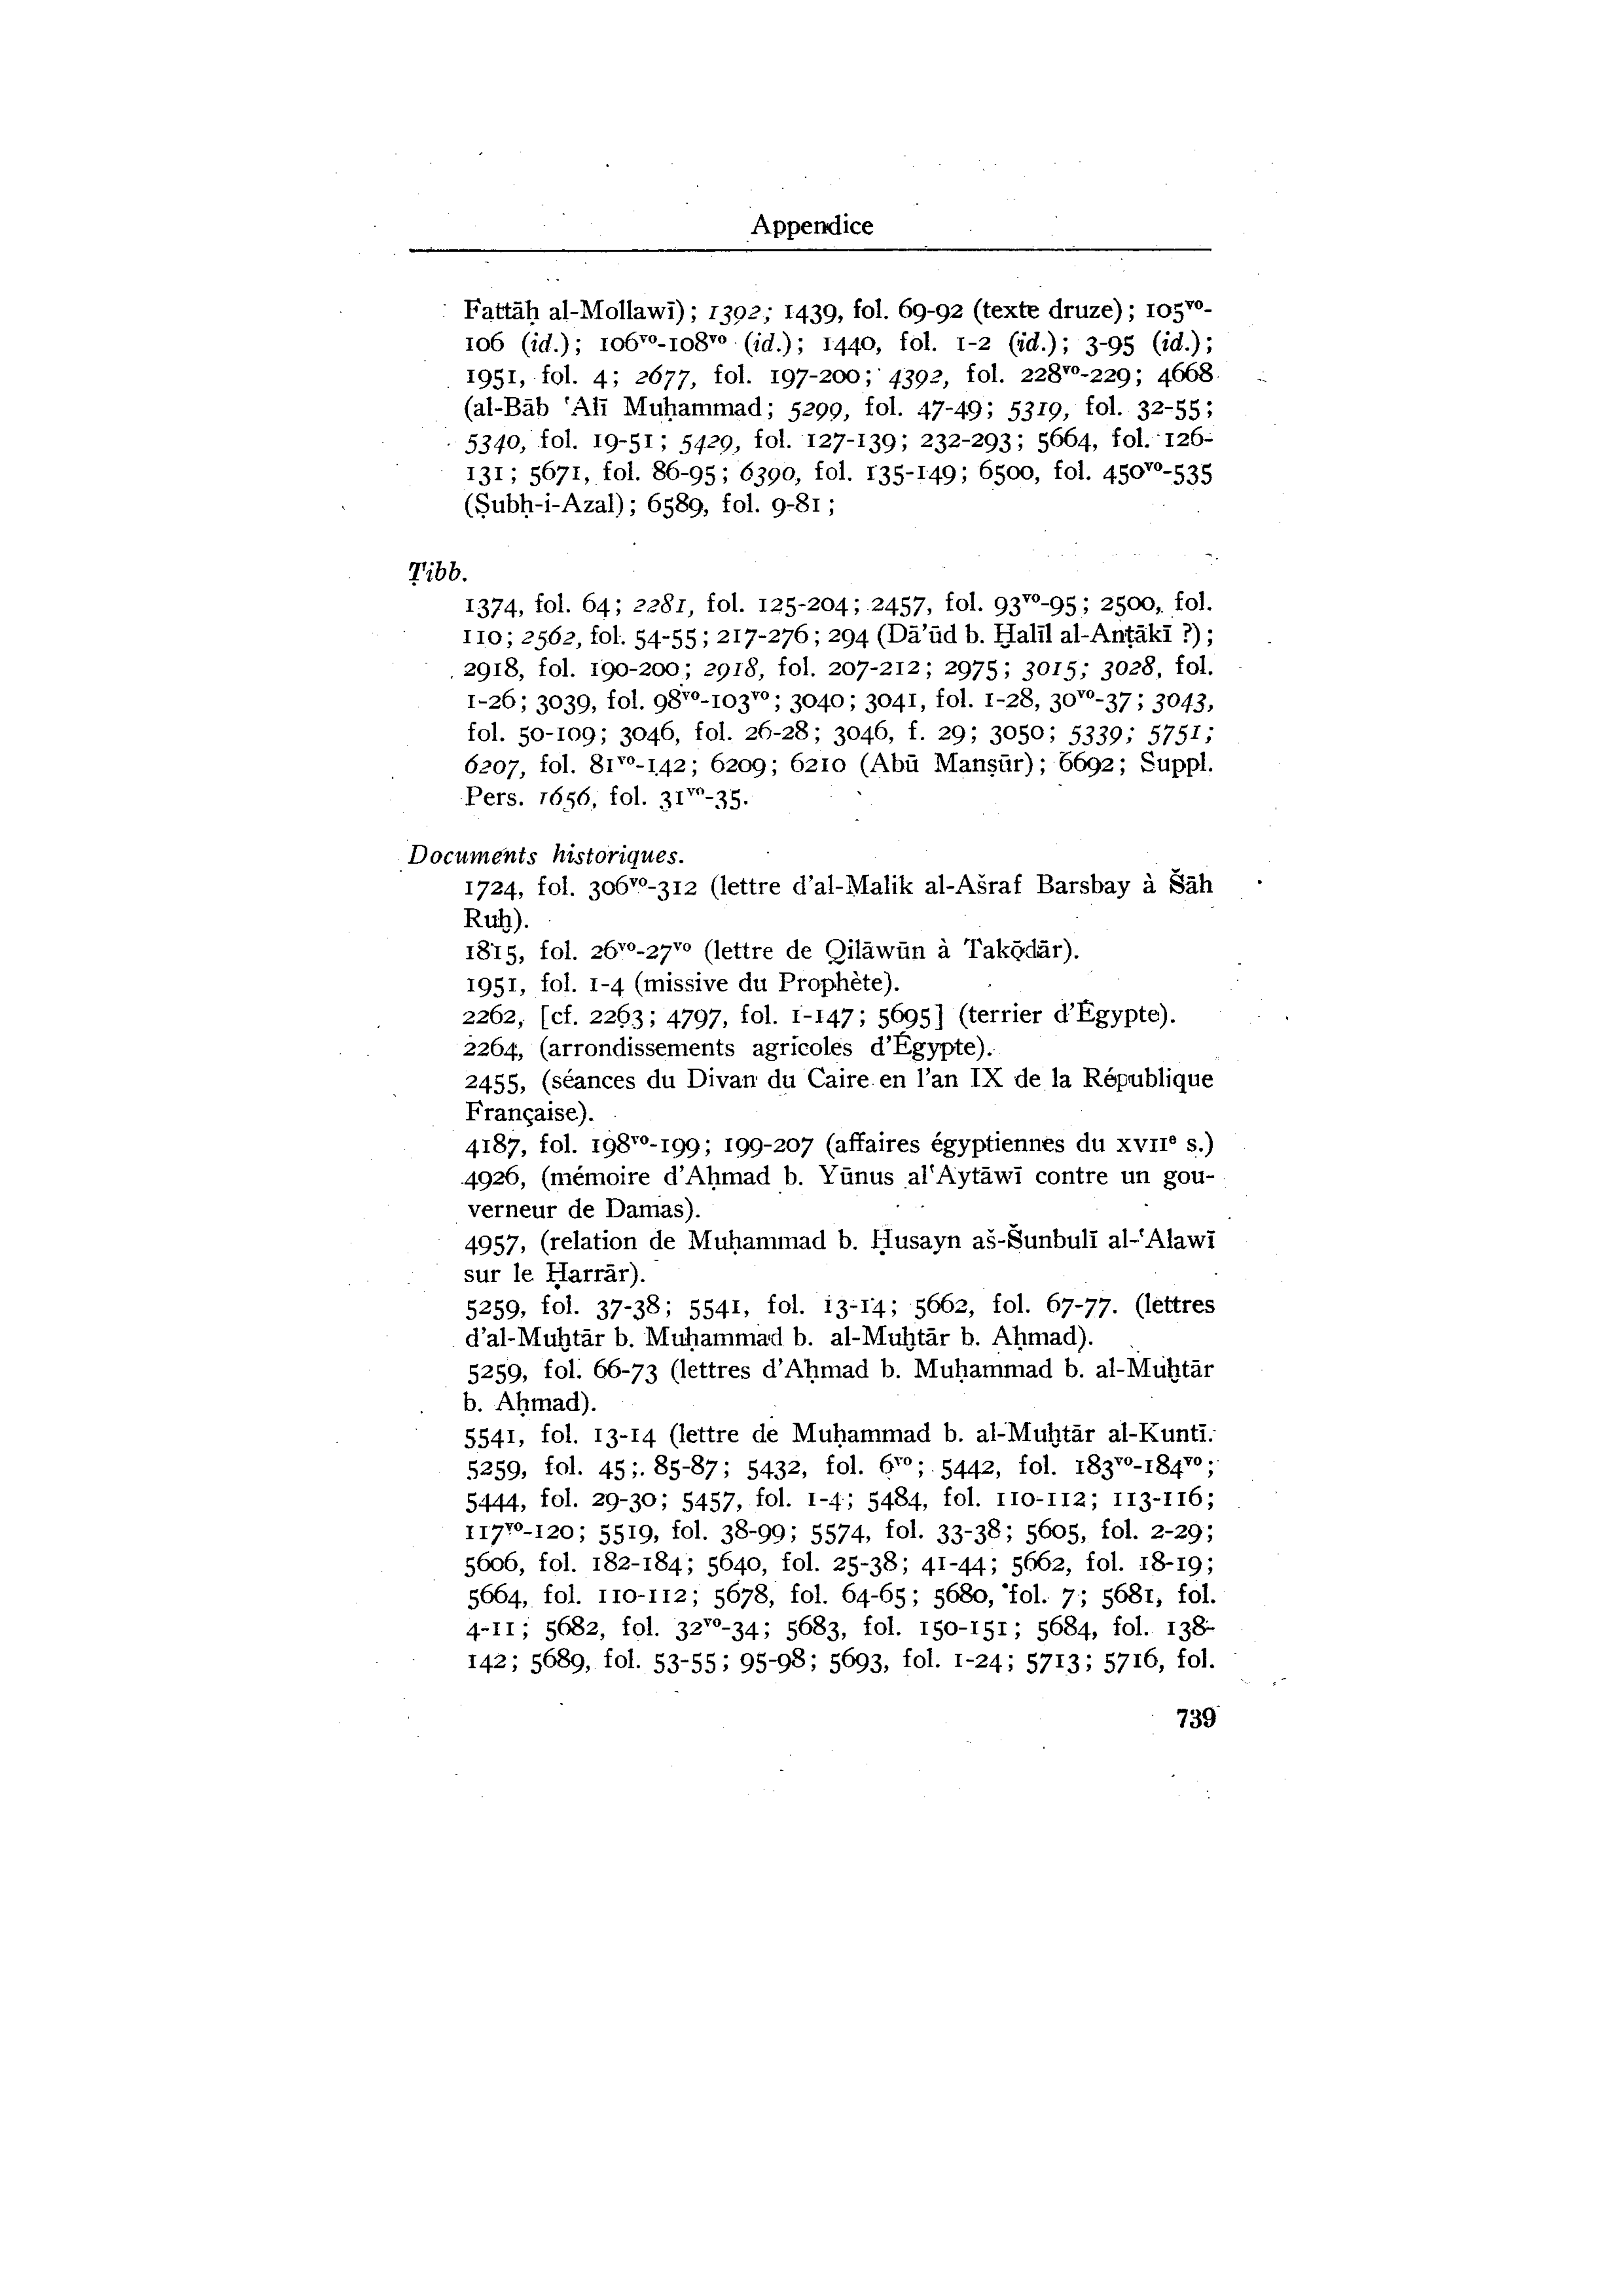 Appendice
Fattāḥ al-Mollawī) ; 1392; 1439, fol. 69-92 (texte druze) ; 105vo-
106 (id.) ; 106vo-108vo (id.) ; 1440, fol. 1-2 (id.) ; 3-95 (id.) ;
1951, fol. 4; 2677, fol. 197-200; 4392, fol. 228vo-229; 4668
(al-Bāb ʿAlī Muḥammad; 5299, fol. 47-49; 5319, fol. 32-55;
5340, fol. 19-51; 5429, fol. 127-139; 232-293; 5664, fol. 126-
131; 5671, fol. 86-95; 6390, fol. 135-149; 6500, fol. 450vo-535
(Ṣubḥ-i-Azal) ; 6589, fol. 9-81 ;
Ṭibb.
1374, fol. 64; 2281, fol. 125-204; 2457, fol. 93vo-95; 2500, fol.
110; 2562, fol. 54-55; 217-276; 294 (Dā'ūd b. Ḫalīl al-Anṭākī ?) ;
2918, fol. 190-200; 2918, fol. 207-212; 2975; 3015; 3028, fol.
1-26; 3039, fol. 98vo-103vo; 3040; 3041, fol. 1-28, 30vo-37; 3043,
fol. 50-109; 3046, fol. 26-28; 3046, f. 29; 3050; 5339; 5751;
6207, fol. 81vo-142; 6209; 6210 (Abū Manṣūr) ; 6692; Suppl.
Pers. 1656, fol. 31vo-35.
Documents historiques.
1724, fol. 306vo-312 (lettre d'al-Malik al-Ašraf Barsbay à Šāh
Ruḫ).
1815, fol. 26vo-27vo (lettre de Qilāwūn à Takōdār).
1951, fol. 1-4 (missive du Prophète).
2262, [cf. 2263; 4797, fol. 1-147; 5695] (terrier d'Égypte).
2264, (arrondissements agricoles d'Égypte).
2455, (séances du Divan du Caire en l'an IX de la République
Française).
4187, fol. 198vo-199; 199-207 (affaires égyptiennes du XVIIe s.)
4926, (mémoire d'Aḥmad b. Yūnus alʿAytāwī contre un gou-
verneur de Damas).
4957, (relation de Muḥammad b. Ḥusayn aš-Šunbulī al-ʿAlawī
sur le Ḥarrār).
5259, fol. 37-38; 5541, fol. 13-14; 5662, fol. 67-77. (lettres
d'al-Muḫtār b. Muḥammad b. al-Muḫtār b. Aḥmad).
5259, fol. 66-73 (lettres d'Aḥmad b. Muḥammad b. al-Muḫtār
b. Aḥmad).
5541, fol. 13-14 (lettre de Muḥammad b. al-Muḫtār al-Kuntī.
5259, fol. 45; 85-87; 5432, fol. 6vo; 5442, fol. 183vo-184vo;
5444, fol. 29-30; 5457, fol. 1-4; 5484, fol. 110-112; 113-116;
117vo-120; 5519, fol. 38-99; 5574, fol. 33-38; 5605, fol. 2-29;
5606, fol. 182-184; 5640, fol. 25-38; 41-44; 5662, fol. 18-19;
5664, fol. 110-112; 5678, fol. 64-65; 5680, fol. 7; 5681, fol.
4-11; 5682, fol. 32vo-34; 5683, fol. 150-151; 5684, fol. 138-
142; 5689, fol. 53-55; 95-98; 5693, fol. 1-24; 5713; 5716, fol.
739